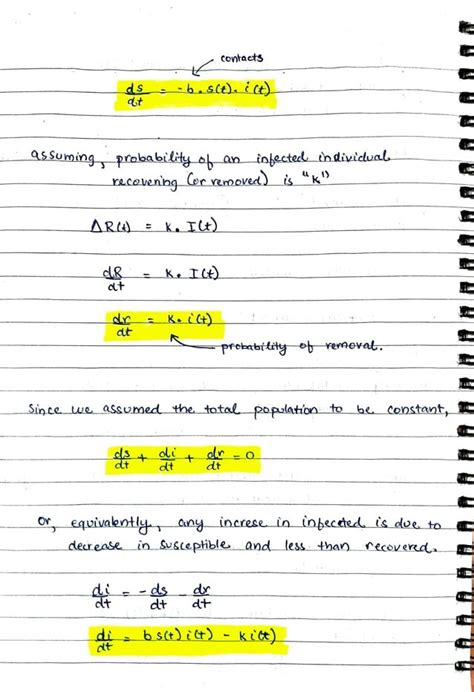 contacts
ds/dt = -b. s(t). i(t)
assuming, probability of an infected individual
recovering (or removed) is "k"
ΔR(t) = k. I(t)
dR/dt = k. I(t)
dr/dt = k. i(t)
probability of removal.
Since we assumed the total population to be constant,
ds/dt + di/dt + dr/dt = 0
Or, equivalently, any increse in infeceted is due to
decrease in susceptible and less than recovered.
di/dt = -ds/dt - dr/dt
di/dt = b s(t) i(t) - k i(t)